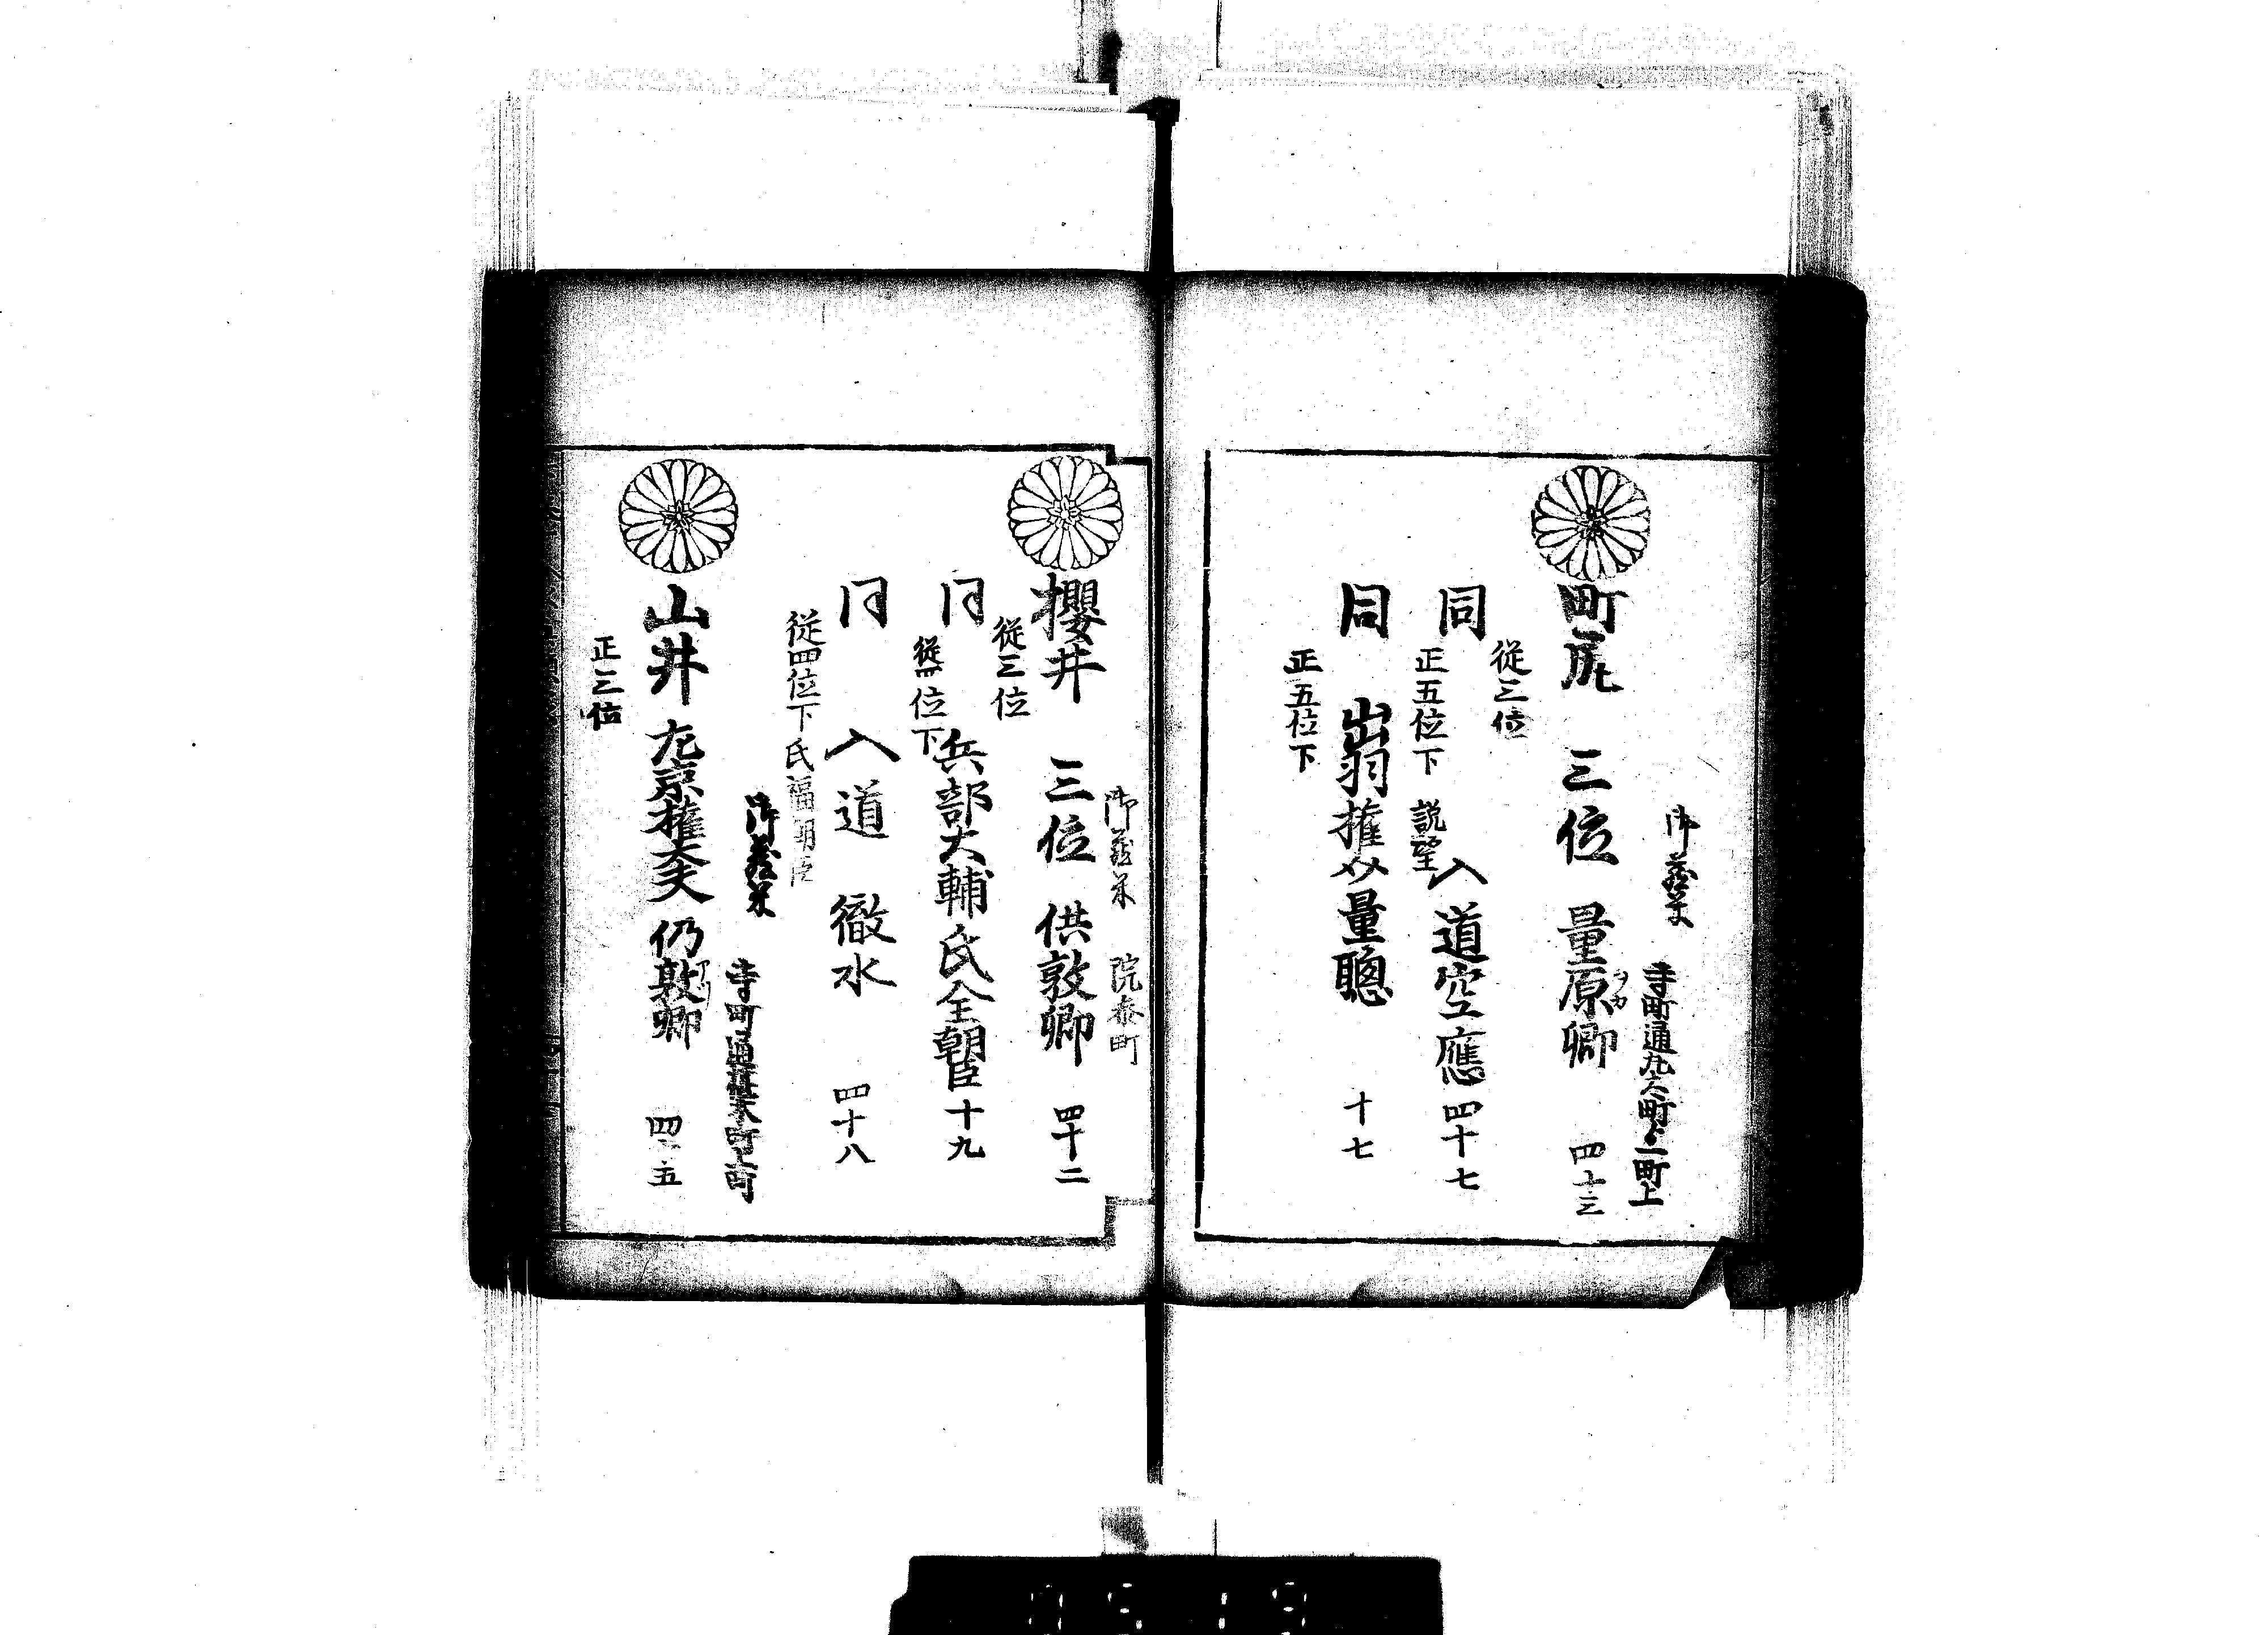 御蔵米
寺町通丸太町上二町上
町尻 三位 量原卿 四十三
従三位
同 入道空應 四十七
正五位下 説望
同 出羽権介量聰 十七
正五位下
御蔵米 院参町
櫻井 三位 供敦卿 四十二
従三位
同 兵部大輔氏全朝臣 十九
従四位下
同 入道 徹水 四十八
従四位下氏福朝臣
御蔵米
寺町通
山井 左京権大夫 仍敦卿 四十五
正三位